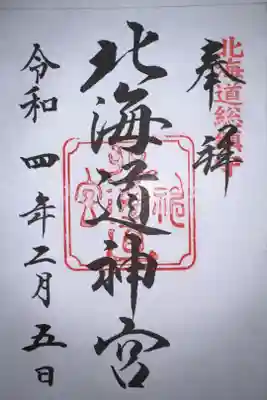 奉拝
北海道総鎮守
北海道神宮
令和四年二月五日